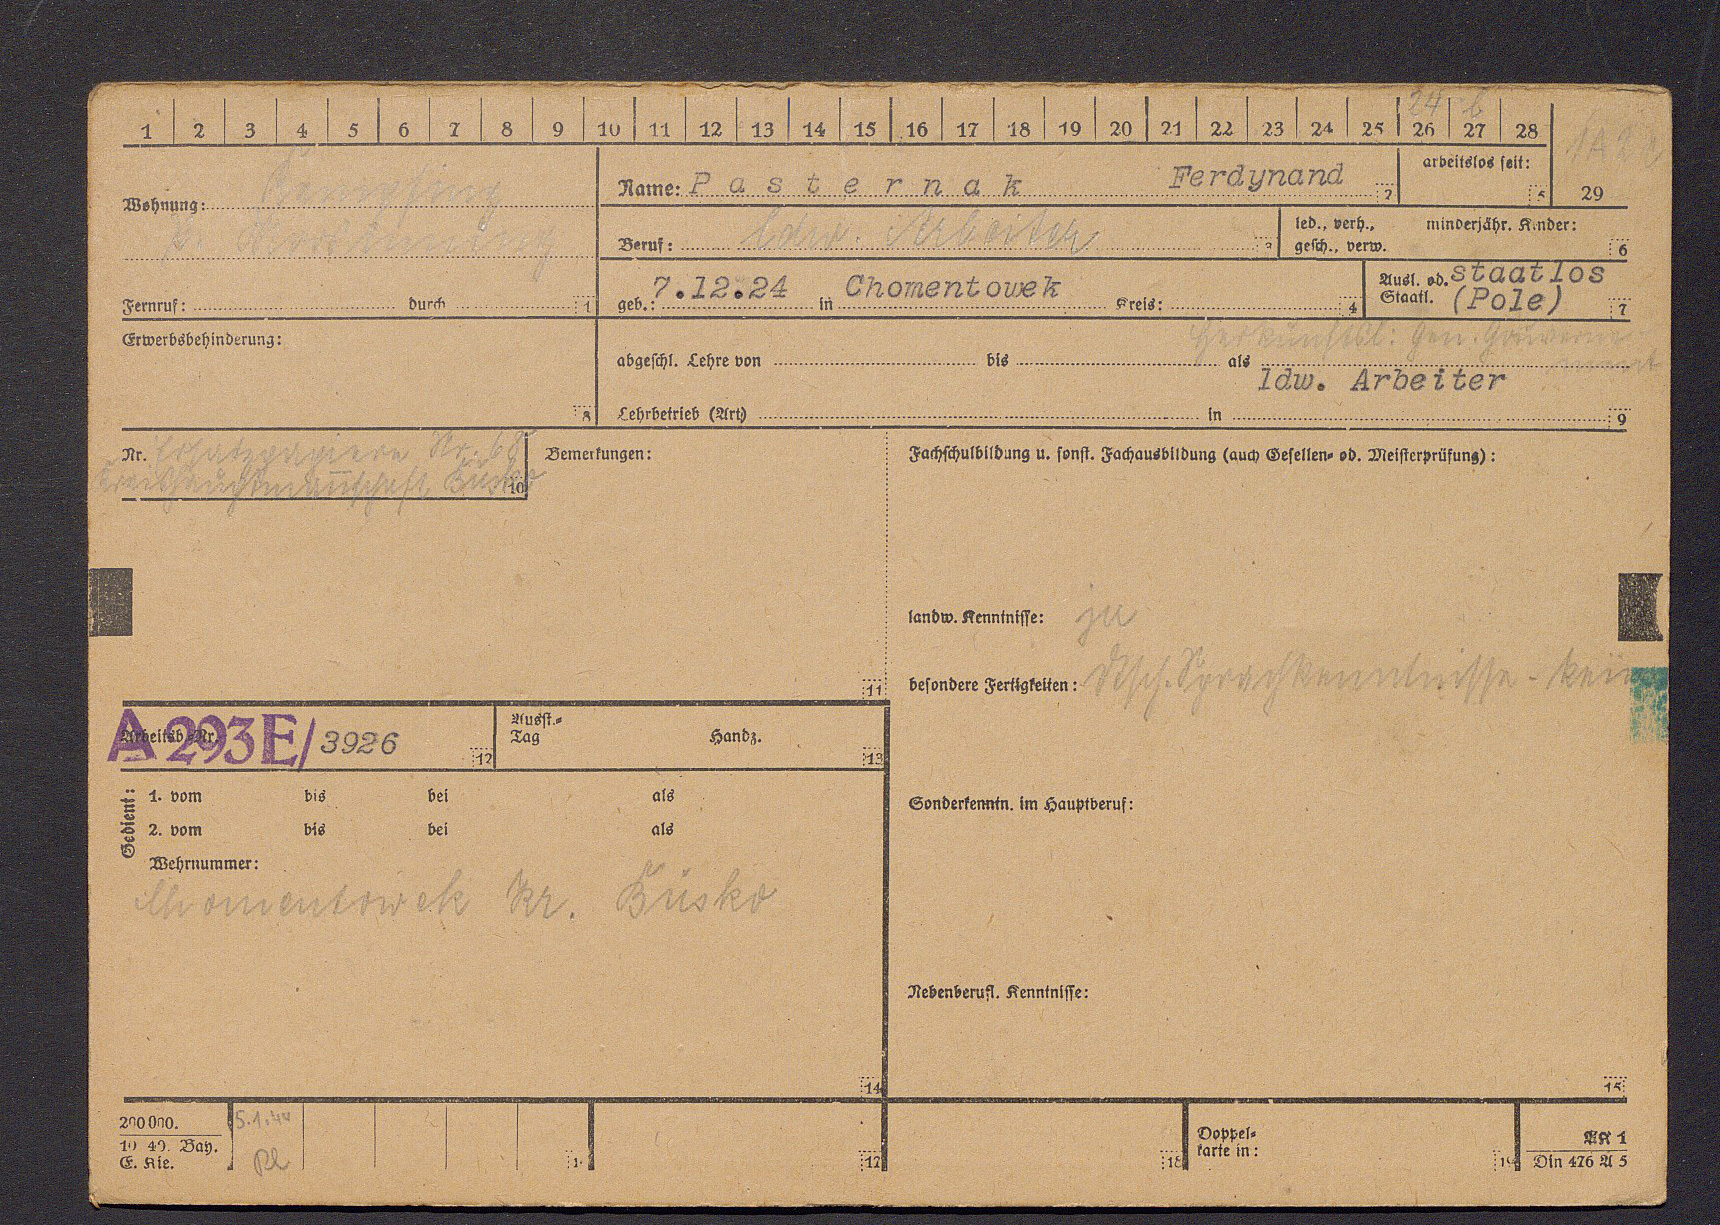 24 6
1 2 3 4 5 6 7 8 9 10 11 12 13 14 15 16 17 18 19 20 21 22 23 24 25 26 27 28
29
Wohnung:
Fernruf: durch 1
Name: Pasternak Ferdynand 2
arbeitslos seit: 5
Beruf: ldw. Arbeiter 3
led., verh., minderjähr. Kinder:
gesch., verw. 6
geb.: 7.12.24 in Chomentowek Kreis: 4
Ausl. od. staatlos
Staatl. (Pole) 7
Erwerbsbehinderung:
8
Herkunftsl: Gen. Gouverne-
ment
abgeschl. Lehre von bis als
ldw. Arbeiter
Lehrbetrieb (Art) in 9
Nr. Ersatzpapiere Nr. 68
Kreishauptmannschaft Busko 10
Bemerkungen:
11
Fachschulbildung u. sonst. Fachausbildung (auch Gesellen- od. Meisterprüfung):
landw. Kenntnisse: ja
besondere Fertigkeiten: Dtsch. Sprachkenntnisse - kein
Arbeitsb.-Nr. A 293E/3926 12
Ausst.- Tag Handz. 13
Gedient:
1. vom bis bei als
2. vom bis bei als
Wehrnummer:
Chomentowek Kr. Busko
14
Sonderkenntn. im Hauptberuf:
Nebenberufl. Kenntnisse:
15
200 000.
10 40. Bay.
E. Kie.
5.1.44
17
18
Doppel-
karte in: 19
AK 1
Din 476 A 5